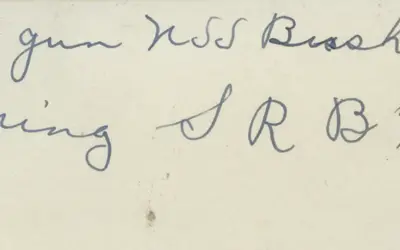 gun NSS Bush
ning S R B